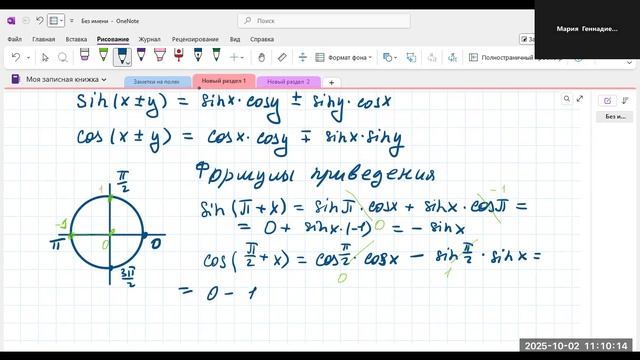 Без имени - OneNote
Поиск
Мария Геннадие...
Файл Главная Вставка Рисование Журнал Рецензирование Вид Справка
Формат фона
Полностраничный
Моя записная книжка
Заметки на полях
Новый раздел 1
Новый раздел 2
+
Без и...
sin(x±y) = sinx·cosy ± siny·cosx
cos(x±y) = cosx·cosy ∓ sinx·siny
Формулы приведения
π/2
1
-1
0
π
0
3π/2
sin(π+x) = sinπ·cosx + sinx·cosπ =
0
-1
= 0 + sinx·(-1) = - sinx
cos(π/2+x) = cosπ/2·cosx - sinπ/2·sinx =
0
1
= 0 - 1
2025-10-02 11:10:14